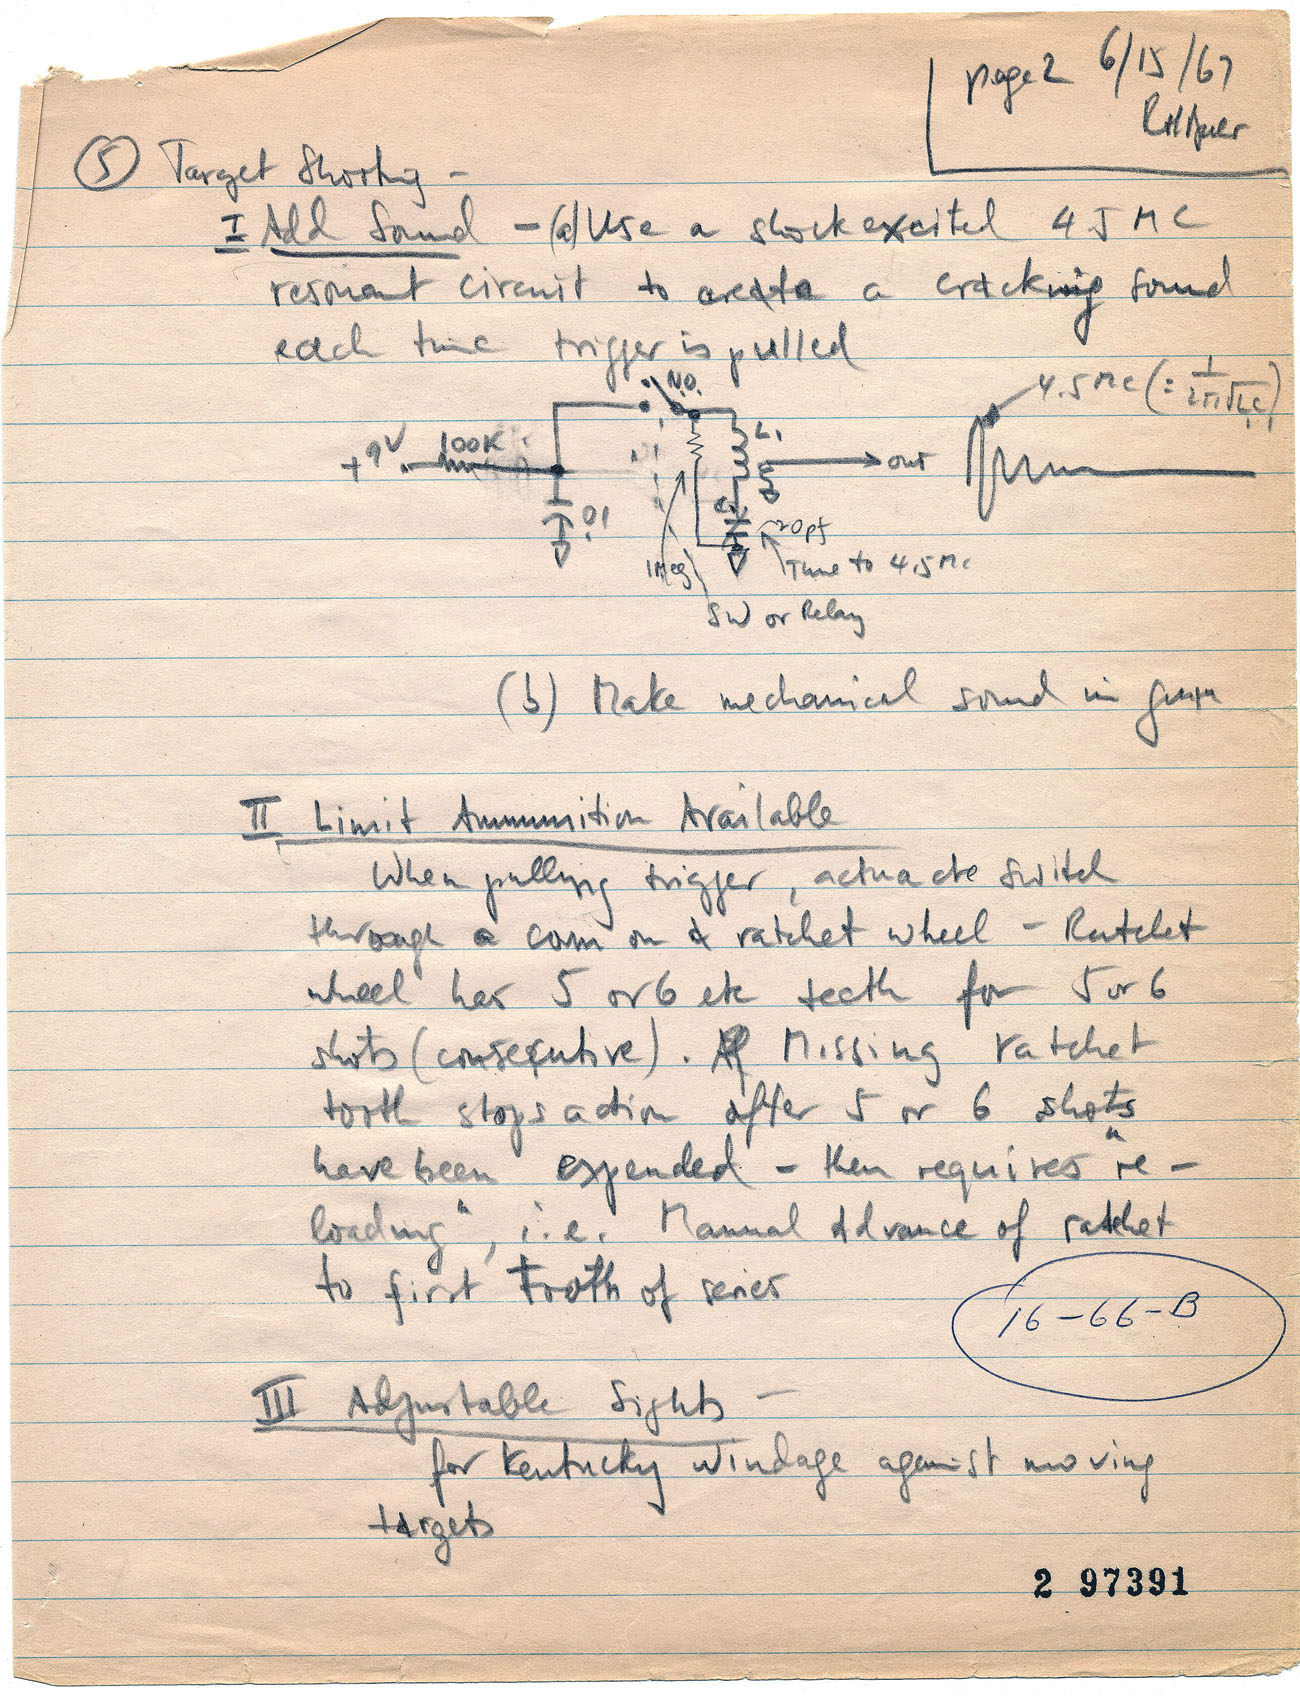 page 2 6/15/67
RHBaer
⑤ Target Shooting -
I Add Sound - (a) Use a shock excited 4.5 MC
resonant circuit to create a cracking sound
each time trigger is pulled
N.O.
4.5 MC (= 1/2π√L₁C₁)
+9V 100K L₁
out
.01 C₁ ~20pf
1Meg Tune to 4.5Mc
SW or Relay
(b) Make mechanical sound in gun
II Limit Ammunition Available
When pulling trigger, actuacte switch
through a cam on a ratchet wheel - Ratchet
wheel has 5 or 6 etc teeth for 5 or 6
shots (consecutive). Missing ratchet
tooth stops action after 5 or 6 shots
have been expended - then requires "re-
loading", i.e. Manual Advance of ratchet
to first Tooth of series
16-66-B
III Adjustable Sights -
for Kentucky windage against moving
targets
2 97391